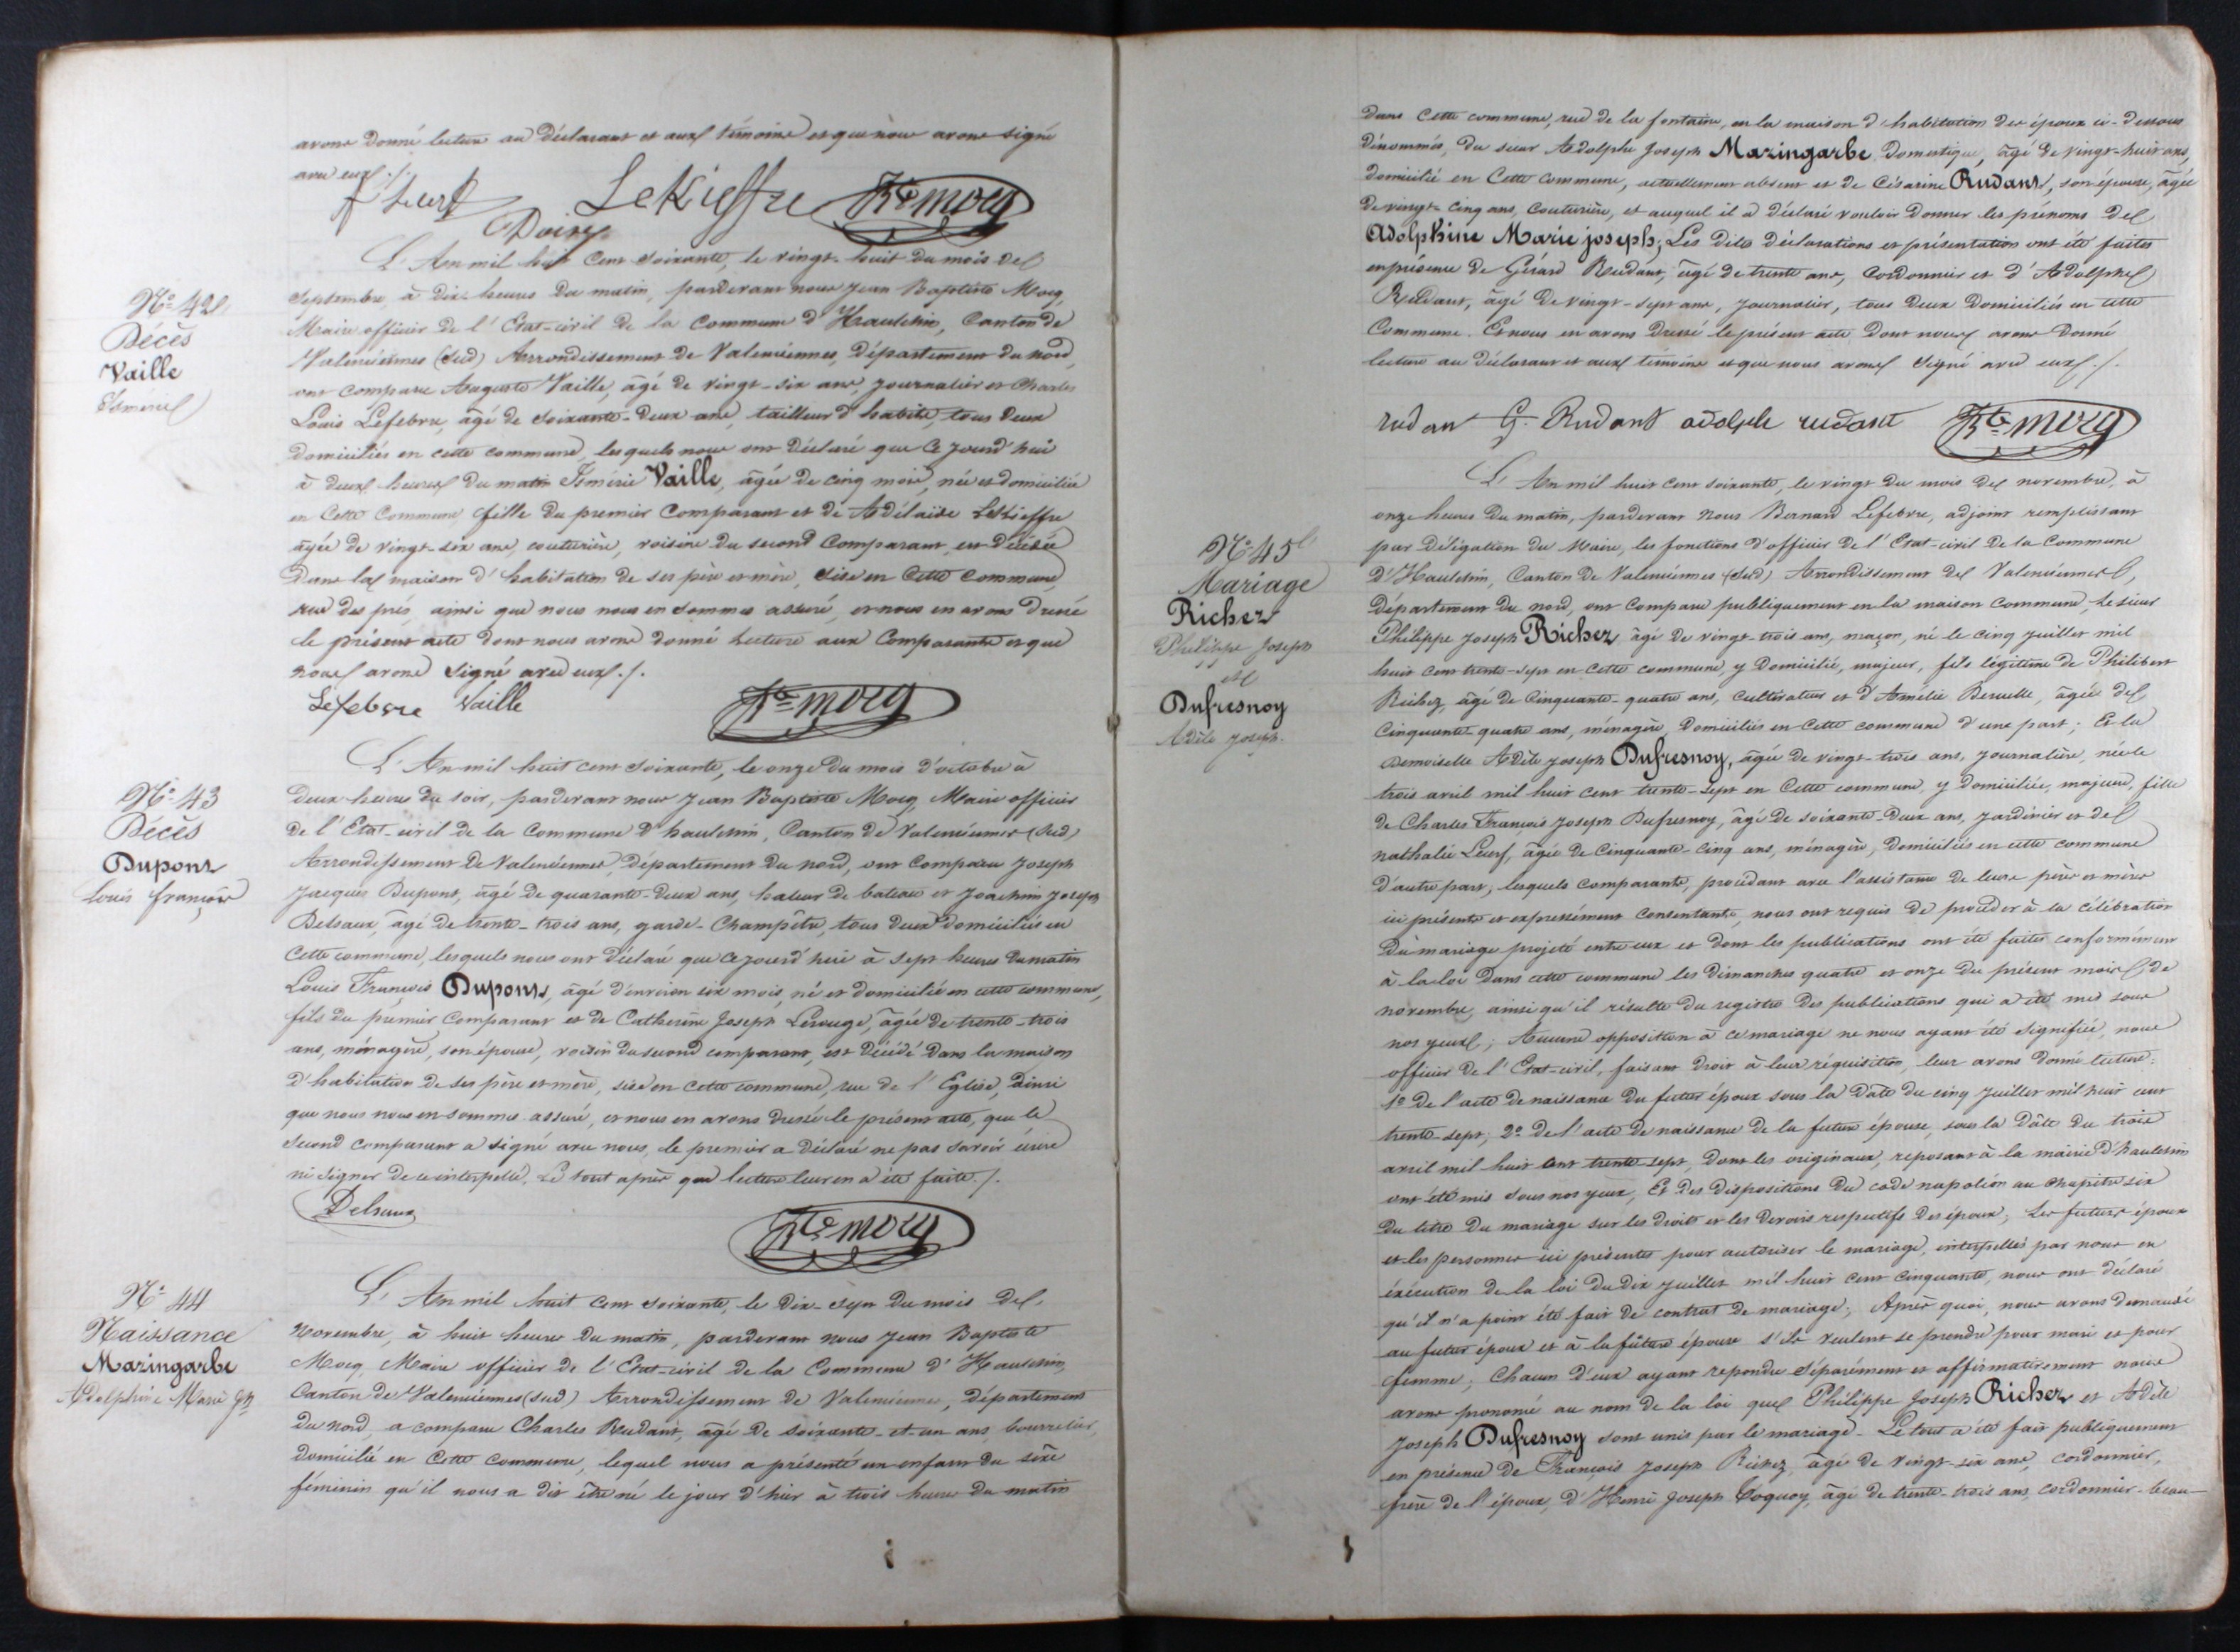 avons donné lecture au déclarant et aux témoins et que nous avons signé
avec eux ./.
Lekieffre Bte mocq
Doisy
L'An mil huit cent soixante, le vingt-huit du mois de
Septembre, à dix heures du matin, pardevant nous Jean Baptiste Mocq,
Maire officier de l'Etat-civil de la Commune d'Haulchin, Canton de
Valenciennes (Sud) Arrondissement de Valenciennes, département du nord,
ont comparu Auguste Vaille, âgé de vingt-six ans, journalier et Charles
Louis Lefebvre, âgé de soixante-deux ans, tailleur d'habits, tous deux
domiciliés en cette commune, lesquels nous ont déclaré que ce jourd'hui
à deux heures du matin Isménie Vaille, âgée de cinq mois, née et domiciliée
en Cette Commune, fille du premier Comparant et de Adélaïde LeKieffre
âgée de vingt-six ans, couturière, voisine du second Comparant, est décédée
Dans la maison d'habitation de ses père et mère, sise en Cette Commune,
rue des prés, ainsi que nous nous en sommes assuré, et nous en avons dressé
le présent acte dont nous avons donné lecture aux Comparants et que
nous avons signé avec eux ./.
Lefebvre Vaille Bte mocq
N° 42
Décès
Vaille
Isménie
L'An mil huit cent soixante, le onze du mois d'octobre à
deux heures du soir, pardevant nous Jean Baptiste Mocq, Maire officier
de l'Etat-civil de la Commune d'haulchin, Canton de Valenciennes (Sud)
Arrondissement de Valenciennes, département du nord, ont comparu Joseph
Jacques Dupont, âgé de quarante-deux ans, haleur de bateau et Joachim Joseph
Delsaux, âgé de trente-trois ans, garde-Champêtre, tous deux domiciliés en
cette commune, lesquels nous ont déclaré que ce jourd'hui à sept heures du matin
Louis François Dupont, âgé d'environ six mois, né et domicilié en cette commune,
fils du premier Comparant et de Catherine Joseph Lerouge, âgée de trente-trois
ans, ménagère, son épouse, voisin du second comparant, est décédé dans la maison
d'habitation de ses père et mère, sise en Cette commune, rue de l'Eglise, ainsi
que nous nous en sommes assuré, et nous en avons dressé le présent acte, que le
second comparant a signé avec nous, le premier a déclaré ne pas savoir écrire
ni signer de ce interpellé. Le tout après que lecture leur en a été faite ./.
Delsaux
Bte mocq
N° 43
Décès
Dupont
Louis françois
L'An mil huit cent soixante, le dix-sept du mois de
Novembre, à huit heures du matin, pardevant nous Jean Baptiste
Mocq, Maire officier de l'Etat-civil de la Commune d'Haulchin,
Canton de Valenciennes (Sud) Arrondissement de Valenciennes, département
du nord, a comparu Charles Rudant, âgé de soixante-et-un ans, bourrelier,
domicilié en Cette Commune, lequel nous a présenté un enfant du sèxe
féminin qu'il nous a dit être né le jour d'hier à trois heures du matin
N° 44
Naissance
Mazingarbe
Adolphine Marie Jph
dans cette commune, rue de la fontaine, en la maison d'habitation des époux ci-dessous
dénommés, du sieur Adolphe Joseph Mazingarbe, Domestique, âgé de vingt-huit ans,
domicilié en Cette Commune, actuellement absent et de Césarine Rudant, son épouse, âgée
de vingt-cinq ans, Couturière, et auquel il a déclaré vouloir donner les prénoms de
Adolphine Marie joseph; Les dites déclarations et présentation ont été faites
en présence de Gérard Rudant, âgé de trente ans, Cordonnier et d'Adolphe
Rudant, âgé de vingt-sept ans, Journalier, tous deux domiciliés en cette
Commune. Et nous en avons dressé le présent acte dont nous avons donné
lecture au déclarant et aux témoins et que nous avons signé avec eux ./.
rudant G. Rudant adolphe rudant Bte mocq
L'An mil huit cent soixante, le vingt du mois de novembre, à
onze heures du matin, pardevant Nous Bernard Lefebvre, adjoint remplissant
par délégation du Maire, les fonctions d'officier de l'Etat-civil de la Commune
d'Haulchin, Canton de Valenciennes (Sud) Arrondissement de Valenciennes,
Département du nord, ont comparu publiquement en la maison Commune, Le sieur
Philippe Joseph Richez, âgé de vingt-trois ans, maçon, né le cinq juillet mil
huit cent trente-sept en cette commune, y domicilié, majeur, fils légitime de Philibert
Richez, âgé de Cinquante-quatre ans, Cultivateur et d'Amélie Deruelle, âgée de
Cinquante-quatre ans, ménagère, domiciliés en Cette commune d'une part; Et la
Demoiselle Adèle Joseph Dufresnoy, âgée de vingt-trois ans, journalière, née le
trois avril mil huit cent trente-sept en Cette commune, y domiciliée, majeure, fille
de Charles François Joseph Dufresnoy, âgé de soixante-deux ans, jardinier et de
nathalie Lecerf, âgée de Cinquante-cinq ans, ménagère, domiciliés en cette commune
d'autre part; lesquels comparants, procédant avec l'assistance de leurs pères et mères
ici présents et expressément consentants, nous ont requis de procéder à la célébration
du mariage projeté entre eux et dont les publications ont été faites conformément
à la loi dans cette commune les dimanches quatre et onze du présent mois de
novembre, ainsi qu'il résulte du registre des publications qui a été mis sous
nos yeux; Aucune opposition à ce mariage ne nous ayant été signifiée, nous
officier de l'Etat-civil, faisant droit à leur réquisition, leur avons donné lecture:
1° De l'acte de naissance du futur époux sous la date du cinq juillet mil huit cent
trente-sept; 2° de l'acte de naissance de la future épouse, sous la date du trois
avril mil huit cent trente-sept, dont les originaux, reposant à la mairie d'haulchin
ont été mis sous nos yeux, Et des dispositions du code napoléon au chapitre six
du titre du mariage sur les droits et les devoirs respectifs des époux; Les futurs époux
et les personnes ici présentes pour autoriser le mariage, interpellés par nous en
éxécution de la loi du dix juillet mil huit cent cinquante, nous ont déclaré
qu'il n'a point été fait de contrat de mariage; Après quoi, nous avons demandé
au futur époux et à la future épouse s'ils veulent se prendre pour mari et pour
femme; Chacun d'eux ayant répondu séparément et affirmativement nous
avons prononcé au nom de la loi que Philippe Joseph Richez et Adèle
Joseph Dufresnoy sont unis par le mariage. Le tout a été fait publiquement
en présence de François Joseph Richez, âgé de vingt-six ans, cordonnier,
frère de l'époux, d'Henri Joseph Coquoy, âgé de trente-trois ans, cordonnier, beau-
N° 45
Mariage
Richez
Philippe Joseph
et
Dufresnoy
Adèle Joseph.